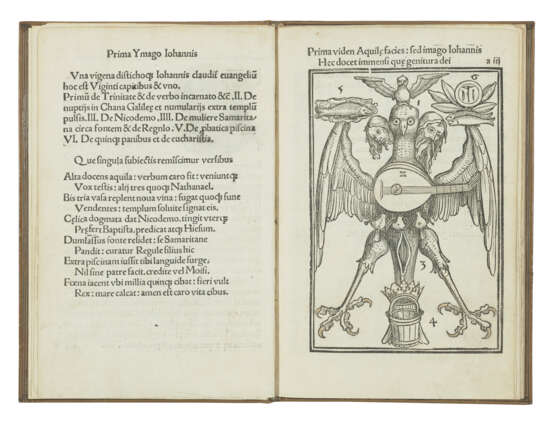 Prima Ymago Iohannis
Vna vigena distichoqȝ Iohannis claudit euangeliũ
hoc est Viginti capitibus & vno.
Primũ de Trinitate & de verbo incarnato &c̃. II. De
nuptijs in Chana Galileę et numularijs extra templũ
pulsis. III. De Nicodemo, IIII. De muliere Samarita-
na circa fontem & de Regulo. V. De pbatica piscina
VI. De quinqȝ panibus et de eucharistia.
Que singula subiectis remiscimur versibus
Alta docens aquila: verbum caro fit: veniuntqȝ
Vox testis: alij tres quoqȝ Nathanael.
Bis tria vasa replent noua vina: fugat quoqȝ fune
Vendentes: templum soluite signat eis.
Cęlica dogmata dat Nicodemo, tingit vterqȝ
Pręfert Baptista, predicat atqȝ Hiesum.
fonte relidet: se Samaritane
Pandit: curatur Regule filius hic
Extra piscinam iussit tibi languide surge,
Nil sine patre facit, credite vel Moisi,
Fœna iacent vbi millia quinqȝ cibat: fieri vult
Rex: mare calcat: amen est caro vita cibus.
Prima viden Aquilę facies: sed imago Iohannis
Hec docet immensi quę genitura dei
a iij
1
2
5
6
3
4